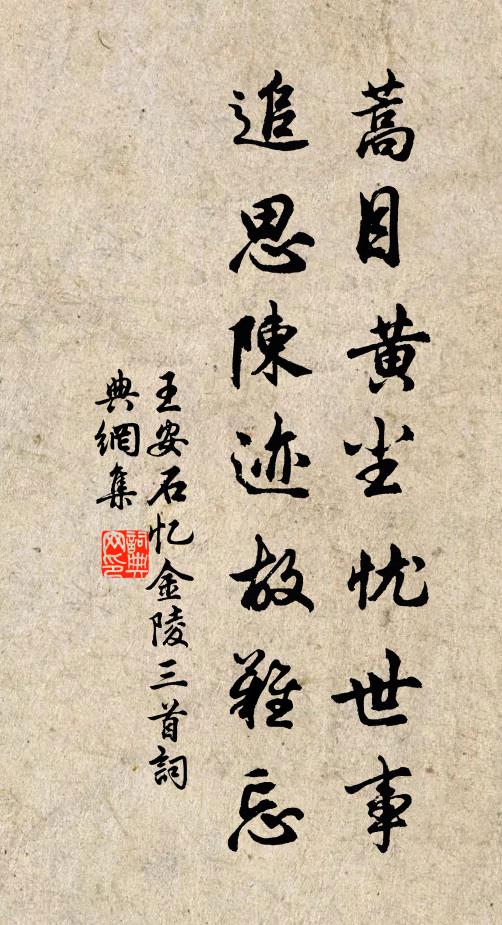 蒿目黄尘忧世事
追思陳迹故難忘
王安石忆金陵三首詞
典網集
詞典网印